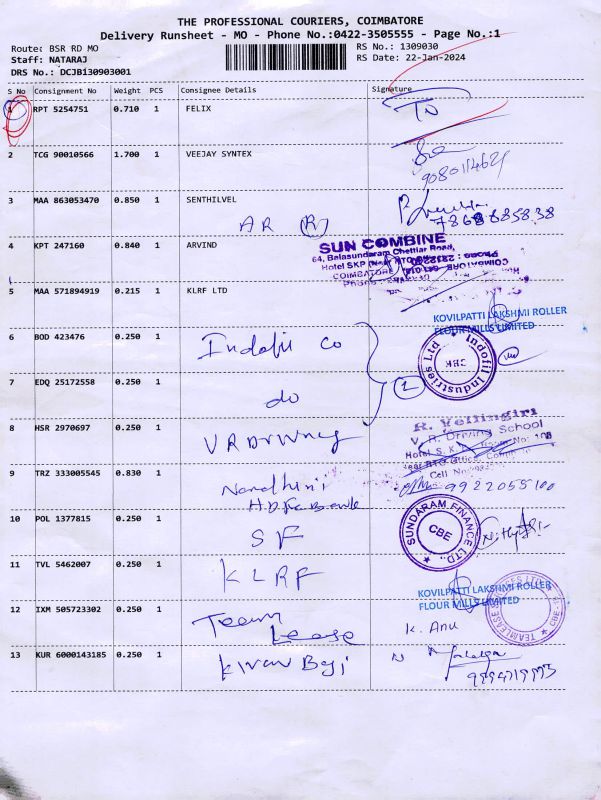 THE PROFESSIONAL COURIERS, COIMBATORE
Delivery Runsheet - MO - Phone No.:0422-3505555 - Page No.:1
Route: BSR RD MO
Staff: NATARAJ
DRS No.: DCJBi30903001
RS No.: 1309030
RS Date: 22-Jan-2024
S No Consignment No Weight PCS Consignee Details Signature
1 RPT 5254751 0.710 1 FELIX
2 TCG 90010566 1.700 1 VEEJAY SYNTEX
3 MAA 863053470 0.850 1 SENTHILVEL
AR (R)
4 KPT 247160 0.840 1 ARVIND
SUN COMBINE
64, Balasundaram Chettiar Road,
5 MAA 571894919 0.215 1 KLRF LTD
KOVILPATTI LAKSHMI ROLLER
FLOUR MILLS LIMITED
6 BOD 423476 0.250 1 Indofil Co
Indofil Industries Ltd
CBE
7 EDQ 25172558 0.250 1 do
8 HSR 2970697 0.250 1
R. Vellingiri
V. R. Driving School
9 TRZ 333005545 0.830 1 Nandhini
HDFC Bank
9922055100
10 POL 1377815 0.250 1 SF
SUNDARAM FINANCE LTD.,
CBE
11 TVL 5462007 0.250 1 KLRF
KOVILPATTI LAKSHMI ROLLER
FLOUR MILLS LIMITED
12 IXM 505723302 0.250 1 Team
Lease
K. Anu
13 KUR 6000143185 0.250 1 Kiran Beji